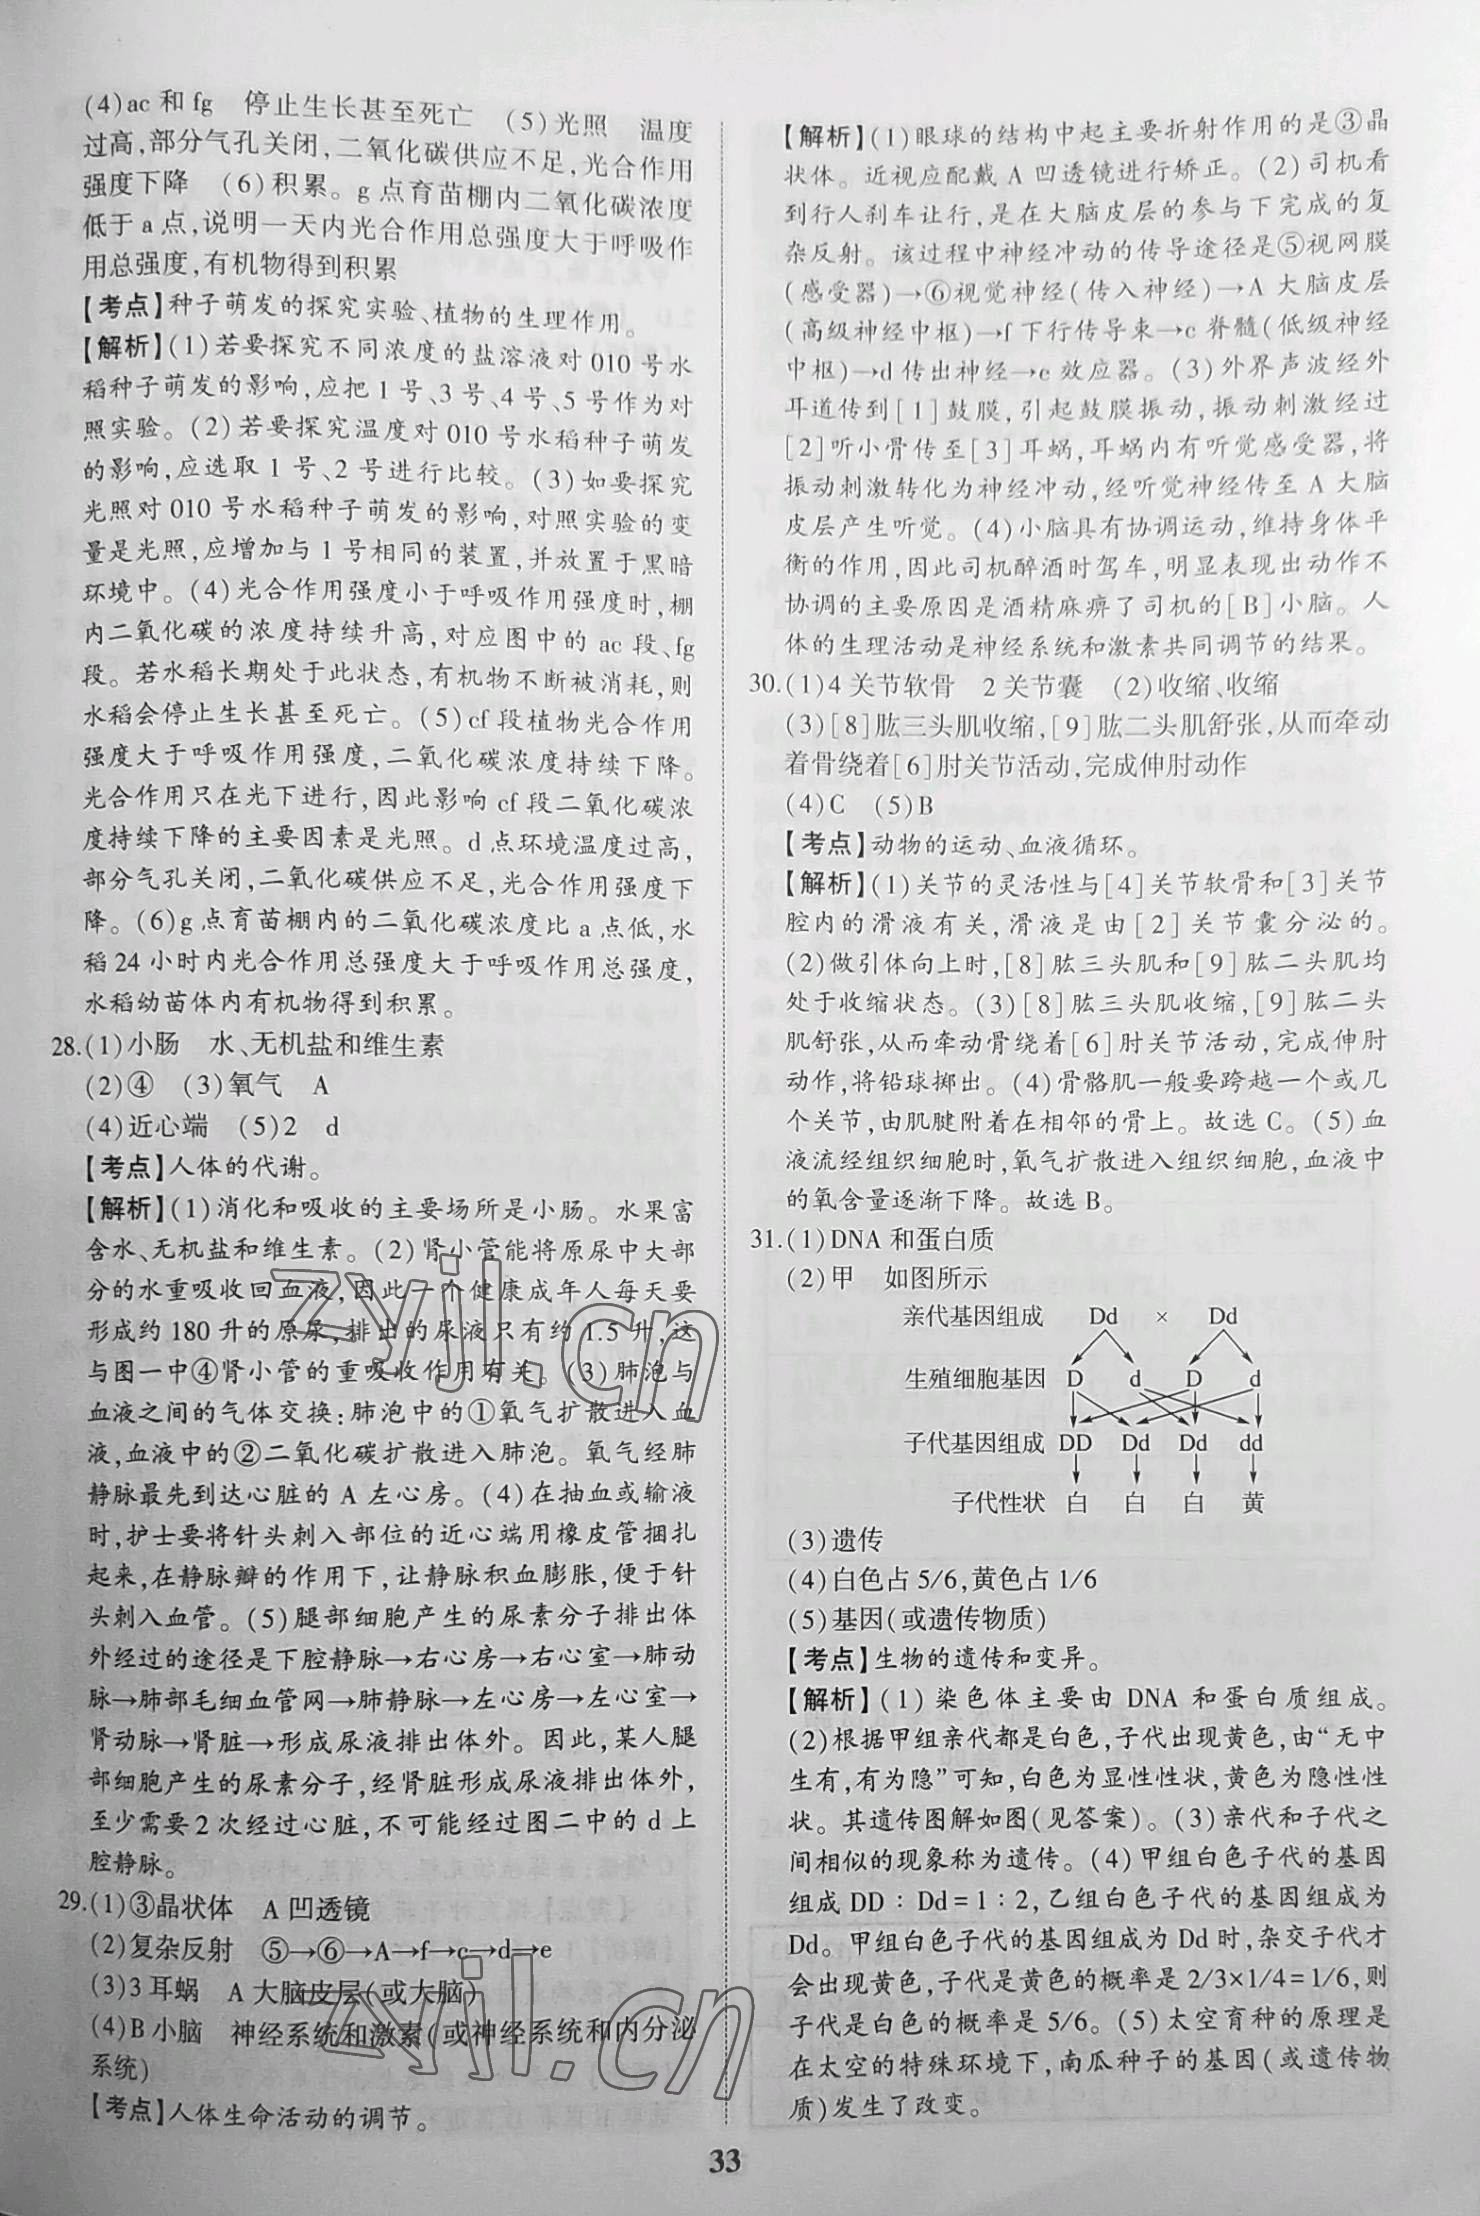 (4)ac 和 fg　停止生长甚至死亡　(5)光照　温度
过高,部分气孔关闭,二氧化碳供应不足,光合作用
强度下降　(6)积累。g 点育苗棚内二氧化碳浓度
低于 a 点,说明一天内光合作用总强度大于呼吸作
用总强度,有机物得到积累
【考点】种子萌发的探究实验、植物的生理作用。
【解析】(1)若要探究不同浓度的盐溶液对 010 号水
稻种子萌发的影响,应把 1 号、3 号、4 号、5 号作为对
照实验。(2)若要探究温度对 010 号水稻种子萌发
的影响,应选取 1 号、2 号进行比较。(3)如要探究
光照对 010 号水稻种子萌发的影响,对照实验的变
量是光照,应增加与 1 号相同的装置,并放置于黑暗
环境中。(4)光合作用强度小于呼吸作用强度时,棚
内二氧化碳的浓度持续升高,对应图中的 ac 段、fg
段。若水稻长期处于此状态,有机物不断被消耗,则
水稻会停止生长甚至死亡。(5)cf 段植物光合作用
强度大于呼吸作用强度,二氧化碳浓度持续下降。
光合作用只在光下进行,因此影响 cf 段二氧化碳浓
度持续下降的主要因素是光照。d 点环境温度过高,
部分气孔关闭,二氧化碳供应不足,光合作用强度下
降。(6)g 点育苗棚内的二氧化碳浓度比 a 点低,水
稻 24 小时内光合作用总强度大于呼吸作用总强度,
水稻幼苗体内有机物得到积累。
28.(1)小肠　水、无机盐和维生素
(2)④　(3)氧气　A
(4)近心端　(5)2　d
【考点】人体的代谢。
【解析】(1)消化和吸收的主要场所是小肠。水果富
含水、无机盐和维生素。(2)肾小管能将原尿中大部
分的水重吸收回血液,因此一个健康成年人每天要
形成约 180 升的原尿,排出的尿液只有约 1.5 升,这
与图一中④肾小管的重吸收作用有关。(3)肺泡与
血液之间的气体交换:肺泡中的①氧气扩散进入血
液,血液中的②二氧化碳扩散进入肺泡。氧气经肺
静脉最先到达心脏的 A 左心房。(4)在抽血或输液
时,护士要将针头刺入部位的近心端用橡皮管捆扎
起来,在静脉瓣的作用下,让静脉积血膨胀,便于针
头刺入血管。(5)腿部细胞产生的尿素分子排出体
外经过的途径是下腔静脉→右心房→右心室→肺动
脉→肺部毛细血管网→肺静脉→左心房→左心室→
肾动脉→肾脏→形成尿液排出体外。因此,某人腿
部细胞产生的尿素分子,经肾脏形成尿液排出体外,
至少需要 2 次经过心脏,不可能经过图二中的 d 上
腔静脉。
29.(1)③晶状体　A 凹透镜
(2)复杂反射　⑤→⑥→A→f→c→d→e
(3)3 耳蜗　A 大脑皮层(或大脑)
(4)B 小脑　神经系统和激素(或神经系统和内分泌
系统)
【考点】人体生命活动的调节。
【解析】(1)眼球的结构中起主要折射作用的是③晶
状体。近视应配戴 A 凹透镜进行矫正。(2)司机看
到行人刹车让行,是在大脑皮层的参与下完成的复
杂反射。该过程中神经冲动的传导途径是⑤视网膜
(感受器)→⑥视觉神经(传入神经)→A 大脑皮层
(高级神经中枢)→f 下行传导束→c 脊髓(低级神经
中枢)→d 传出神经→e 效应器。(3)外界声波经外
耳道传到[1]鼓膜,引起鼓膜振动,振动刺激经过
[2]听小骨传至[3]耳蜗,耳蜗内有听觉感受器,将
振动刺激转化为神经冲动,经听觉神经传至 A 大脑
皮层产生听觉。(4)小脑具有协调运动,维持身体平
衡的作用,因此司机醉酒时驾车,明显表现出动作不
协调的主要原因是酒精麻痹了司机的[B]小脑。人
体的生理活动是神经系统和激素共同调节的结果。
30.(1)4 关节软骨　2 关节囊　(2)收缩、收缩
(3)[8]肱三头肌收缩,[9]肱二头肌舒张,从而牵动
着骨绕着[6]肘关节活动,完成伸肘动作
(4)C　(5)B
【考点】动物的运动、血液循环。
【解析】(1)关节的灵活性与[4]关节软骨和[3]关节
腔内的滑液有关,滑液是由[2]关节囊分泌的。
(2)做引体向上时,[8]肱三头肌和[9]肱二头肌均
处于收缩状态。(3)[8]肱三头肌收缩,[9]肱二头
肌舒张,从而牵动骨绕着[6]肘关节活动,完成伸肘
动作,将铅球掷出。(4)骨骼肌一般要跨越一个或几
个关节,由肌腱附着在相邻的骨上。故选 C。(5)血
液流经组织细胞时,氧气扩散进入组织细胞,血液中
的氧含量逐渐下降。故选 B。
31.(1)DNA 和蛋白质
(2)甲　如图所示
亲代基因组成　Dd　×　Dd
生殖细胞基因　D　d　D　d
子代基因组成　DD　Dd　Dd　dd
子代性状　白　白　白　黄
(3)遗传
(4)白色占 5/6,黄色占 1/6
(5)基因(或遗传物质)
【考点】生物的遗传和变异。
【解析】(1)染色体主要由 DNA 和蛋白质组成。
(2)根据甲组亲代都是白色,子代出现黄色,由“无中
生有,有为隐”可知,白色为显性性状,黄色为隐性性
状。其遗传图解如图(见答案)。(3)亲代和子代之
间相似的现象称为遗传。(4)甲组白色子代的基因
组成 DD∶Dd=1∶2,乙组白色子代的基因组成为
Dd。甲组白色子代的基因组成为 Dd 时,杂交子代才
会出现黄色,子代是黄色的概率是 2/3×1/4=1/6,则
子代是白色的概率是 5/6。(5)太空育种的原理是
在太空的特殊环境下,南瓜种子的基因(或遗传物
质)发生了改变。
33
zyjl.cn
zyjl.cn